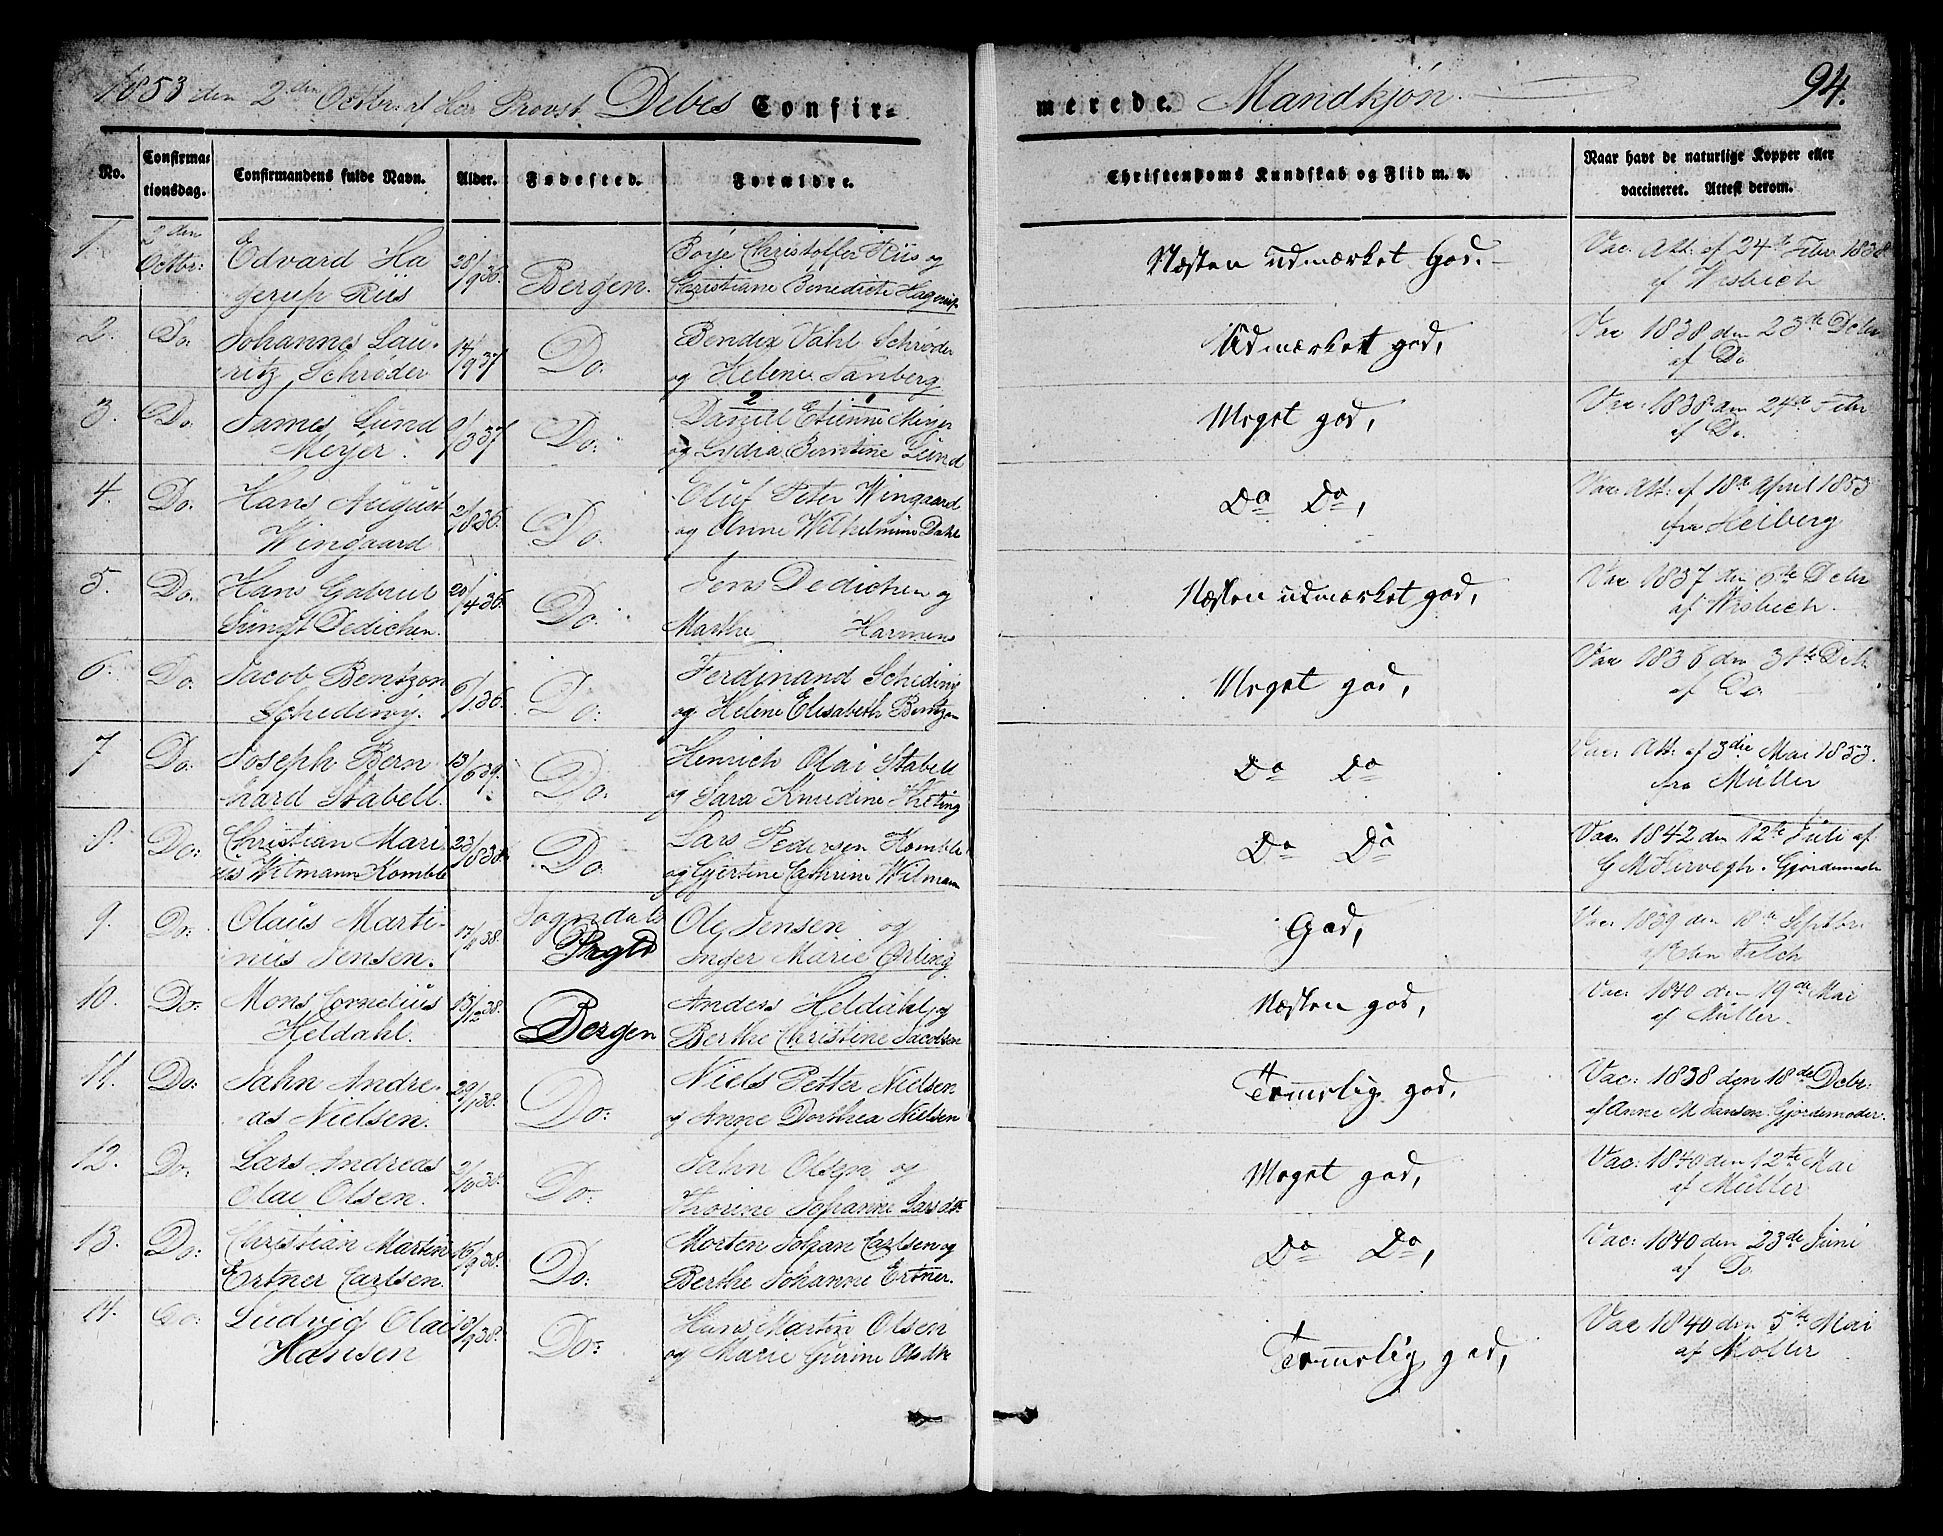 1853 den 2den Octbr: af Herr Provst Debes Confir-
merede. Mandkjøn. 94.
No. Confirma- tionsdag. Confirmandens fulde Navn. Alder. Fødested. Forældre. Christendoms Kundskab og Flid m. v. Naar havt de naturlige Kopper eller vaccineret. Attest derom.
1. 2den Octbr: Edvard Ha 28/9 36. Bergen. Børje Christoffer Riis og Næsten udmærket God. Vac. Att: af 24de Febr 1838
gerup Riis Christiane Benedicte Hagerup. af Wisbech
2. Do. Johannes Lau- 14/9 37 Do. Bendix Vahl Schrøder Udmærket god, Vac 1838 den 23de Debr
ritz Schrøder og Helene Sanberg af Do
3. Do. James Lund 9/3 37 Do. Daniel Etienne Meyer Meget god, Vac: 1838 den 24de Febr
Meyer. og Lydia Berntine Lund af Do.
4. Do. Hans August 2/8 36. Do. Oluf Peter Wingaard Do Do, Vac. Att: af 18de April 1853
Wingaard og Anne Wilhelmine Dahl fra Heiberg
5. Do. Hans Gabriel 20/4 36. Do. Jens Dedichen og Næsten udmærket god, Vac 1837 den 6te Debr
Sundt Dedichen. Marthe Harmens af Wisbech.
6. Do. Jacob Bentzon 6/1 36. Do. Ferdinand Scheding Meget god, Vac 1836 den 31te Debr
Scheding. og Helene Elisabeth Bentzon af Do
7 Do. Joseph Bern 13/6 39. Do. Henrich Olai Stabell Do Do Vac. Att: af 3die Mai 1853.
hard Stabell. og Sara Knudine fra Müller
8. Do: Christian Mari 23/8 38. Do. Lars Pedersen Komble Do Do Vac. 1842 den 12te Juli af
us Witmann Komble og Gjertine Cathrine Witmann G M Hervegh. Gjordemoder
9. Do: Olaus Marti- 17/1 38. Sogndals Ole Jensen og God, Vac: 1839 den 18de Septbr.
nus Jensen. Prgld Inger Marie Ørling af Falch
10. Do: Mons Cornelius 13/12 38. Bergen Anders Heldahl og Næsten god, Vac: 1840 den 19de Mai
Heldahl. Berthe Christine Jacobsen af Müller.
11. Do: Jahn Andre- 29/1 38. Do: Niels Petter Nielsen Temmelig god, Vac: 1838 den 18de Debr:
as Nielsen. og Anne Dorthea Nielsen af Anne M Jansen Gjordemoder.
12. Do. Lars Andreas Do. Jahn Olsen og Meget god, Vac: 1840 den 12te Mai
Olai Olsen. Thorine Johanne Larsdtr af Müller
13. Do: Christian Martin 16/9 38. Do: Morten Johan Carlsen og Do Do, Vac: 1840 den 23de Juni
Ertner Carlsen. Berthe Johanne Ertner. af Do
14. Do: Ludvig Olai 13/9 38. Do: Hans Martin Olsen Temmelig god, Vac 1840 den 5te Mai
Hansen og Marie Gurine Olsdtr af Møller